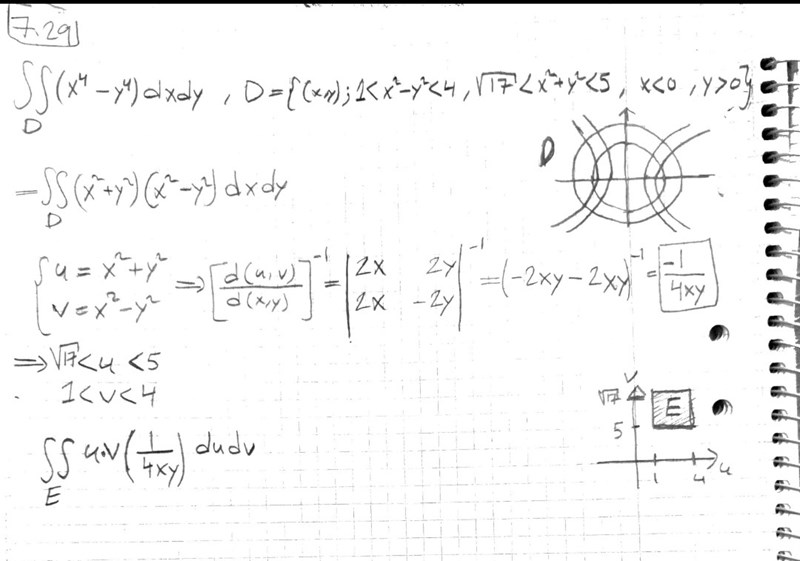 7.29
∬_D (x⁴ - y⁴) dxdy , D = {(x,y); 1 < x² - y² < 4 , √17 < x² + y² < 5 , x<0 , y>0}
D
= ∬_D (x² + y²)(x² - y²) dxdy
{ u = x² + y²
v = x² - y² ⇒ [d(u,v)/d(x,y)]⁻¹ = |2x 2y; 2x -2y|⁻¹ = (-2xy - 2xy)⁻¹ = -1/4xy
⇒ √17 < u < 5
1 < v < 4
∬_E u·v (1/4xy) dudv
v
√17
E
5
1 4 u